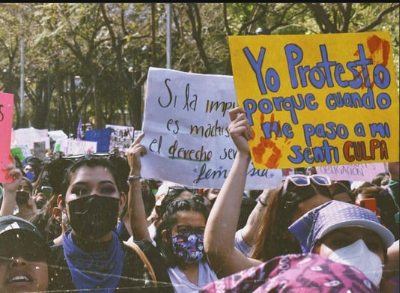 Si la imp
es machis
el derecho ser
fem
Yo Protesto
porque cuando
me paso a mi
senti CULPA